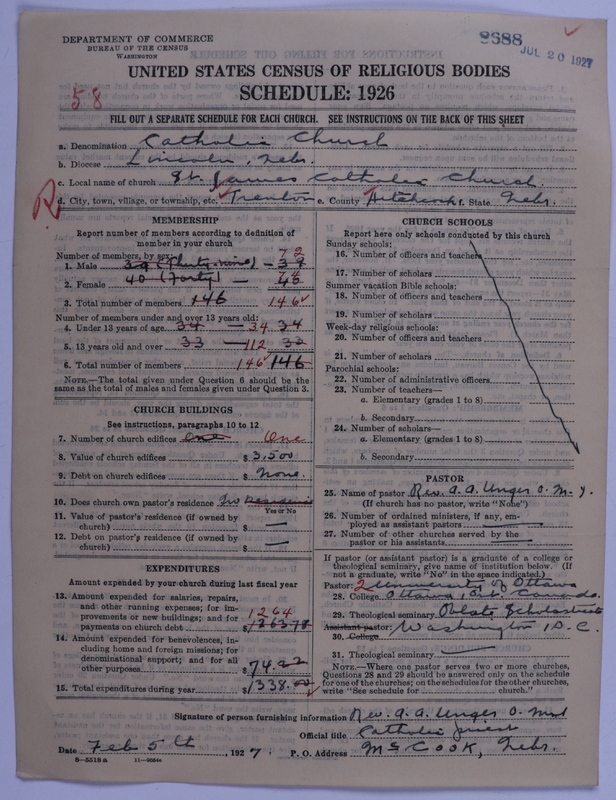 DEPARTMENT OF COMMERCE
BUREAU OF THE CENSUS
WASHINGTON
8688
JUL 20 1927
58
UNITED STATES CENSUS OF RELIGIOUS BODIES
SCHEDULE: 1926
FILL OUT A SEPARATE SCHEDULE FOR EACH CHURCH. SEE INSTRUCTIONS ON THE BACK OF THIS SHEET
a. Denomination Catholic Church
b. Diocese Lincoln, Nebr.
c. Local name of church St. James Catholic Church.
R
d. City, town, village, or township, etc. Trenton e. County Hitchcock f. State Nebr.
MEMBERSHIP
Report number of members according to definition of
member in your church
Number of members, by sex:
1. Male 39 (Thirty nine) — 39 72
2. Female 40 (Forty) — 74
3. Total number of members 146 146
Number of members under and over 13 years old:
4. Under 13 years of age 34 — 34 34
5. 13 years old and over 33 — 112 33
6. Total number of members 146 146
NOTE.—The total given under Question 6 should be the
same as the total of males and females given under Question 3.
CHURCH BUILDINGS
See instructions, paragraphs 10 to 12
7. Number of church edifices one One
8. Value of church edifices $ 3,500
9. Debt on church edifices $ None.
10. Does church own pastor's residence No Residence
Yes or No
11. Value of pastor's residence (if owned by
church) $ —
12. Debt on pastor's residence (if owned by
church) $ —
EXPENDITURES
Amount expended by your church during last fiscal year
13. Amount expended for salaries, repairs,
and other running expenses; for im-
provements or new buildings; and for
payments on church debt 1264 $ 1263.78
14. Amount expended for benevolences, in-
cluding home and foreign missions; for
denominational support; and for all
other purposes $ 74.22
15. Total expenditures during year $ 1338.00
CHURCH SCHOOLS
Report here only schools conducted by this church
Sunday schools:
16. Number of officers and teachers
17. Number of scholars
Summer vacation Bible schools:
18. Number of officers and teachers
19. Number of scholars
Week-day religious schools:
20. Number of officers and teachers
21. Number of scholars
Parochial schools:
22. Number of administrative officers
23. Number of teachers—
a. Elementary (grades 1 to 8)
b. Secondary
24. Number of scholars—
a. Elementary (grades 1 to 8)
b. Secondary
PASTOR
25. Name of pastor Rev. A. A. Unger O. M. I.
(If church has no pastor, write "None")
26. Number of ordained ministers, if any, em-
ployed as assistant pastors —
27. Number of other churches served by the
pastor or his assistants —
If pastor (or assistant pastor) is a graduate of a college or
theological seminary, give name of institution below. (If
not a graduate, write "No" in the space indicated.)
Pastor: 2 University of Ottawa
28. College Ottawa, Ont. Canada.
29. Theological seminary Oblate Scholasticate
Assistant pastor: Washington, D. C.
30. College
31. Theological seminary —
NOTE.—Where one pastor serves two or more churches,
Questions 28 and 29 should be answered only on the schedule
for one of the churches; on the schedules for the other churches,
write "See schedule for church."
Signature of person furnishing information Rev. A. A. Unger O. M. I.
Official title Catholic priest
Date Feb 5th, 1927. P. O. Address McCook, Nebr.
8—5518a 11—9564a